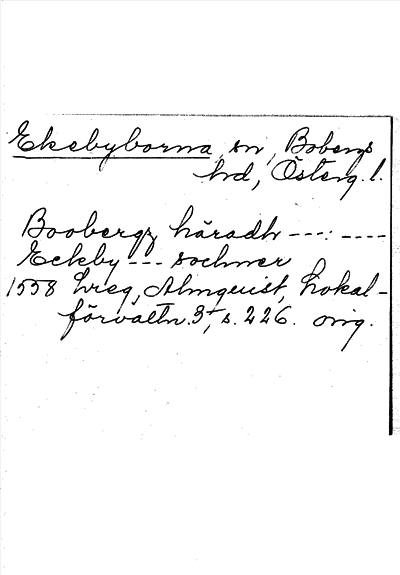 Ekebyborna, sn, Bobergs
hd, Österg. l.
Boobergz häradh ---:----
Eckby --- sochner
1558 Lreg, Almquist, Lokal-
förvaltn. 3, s. 226. orig.